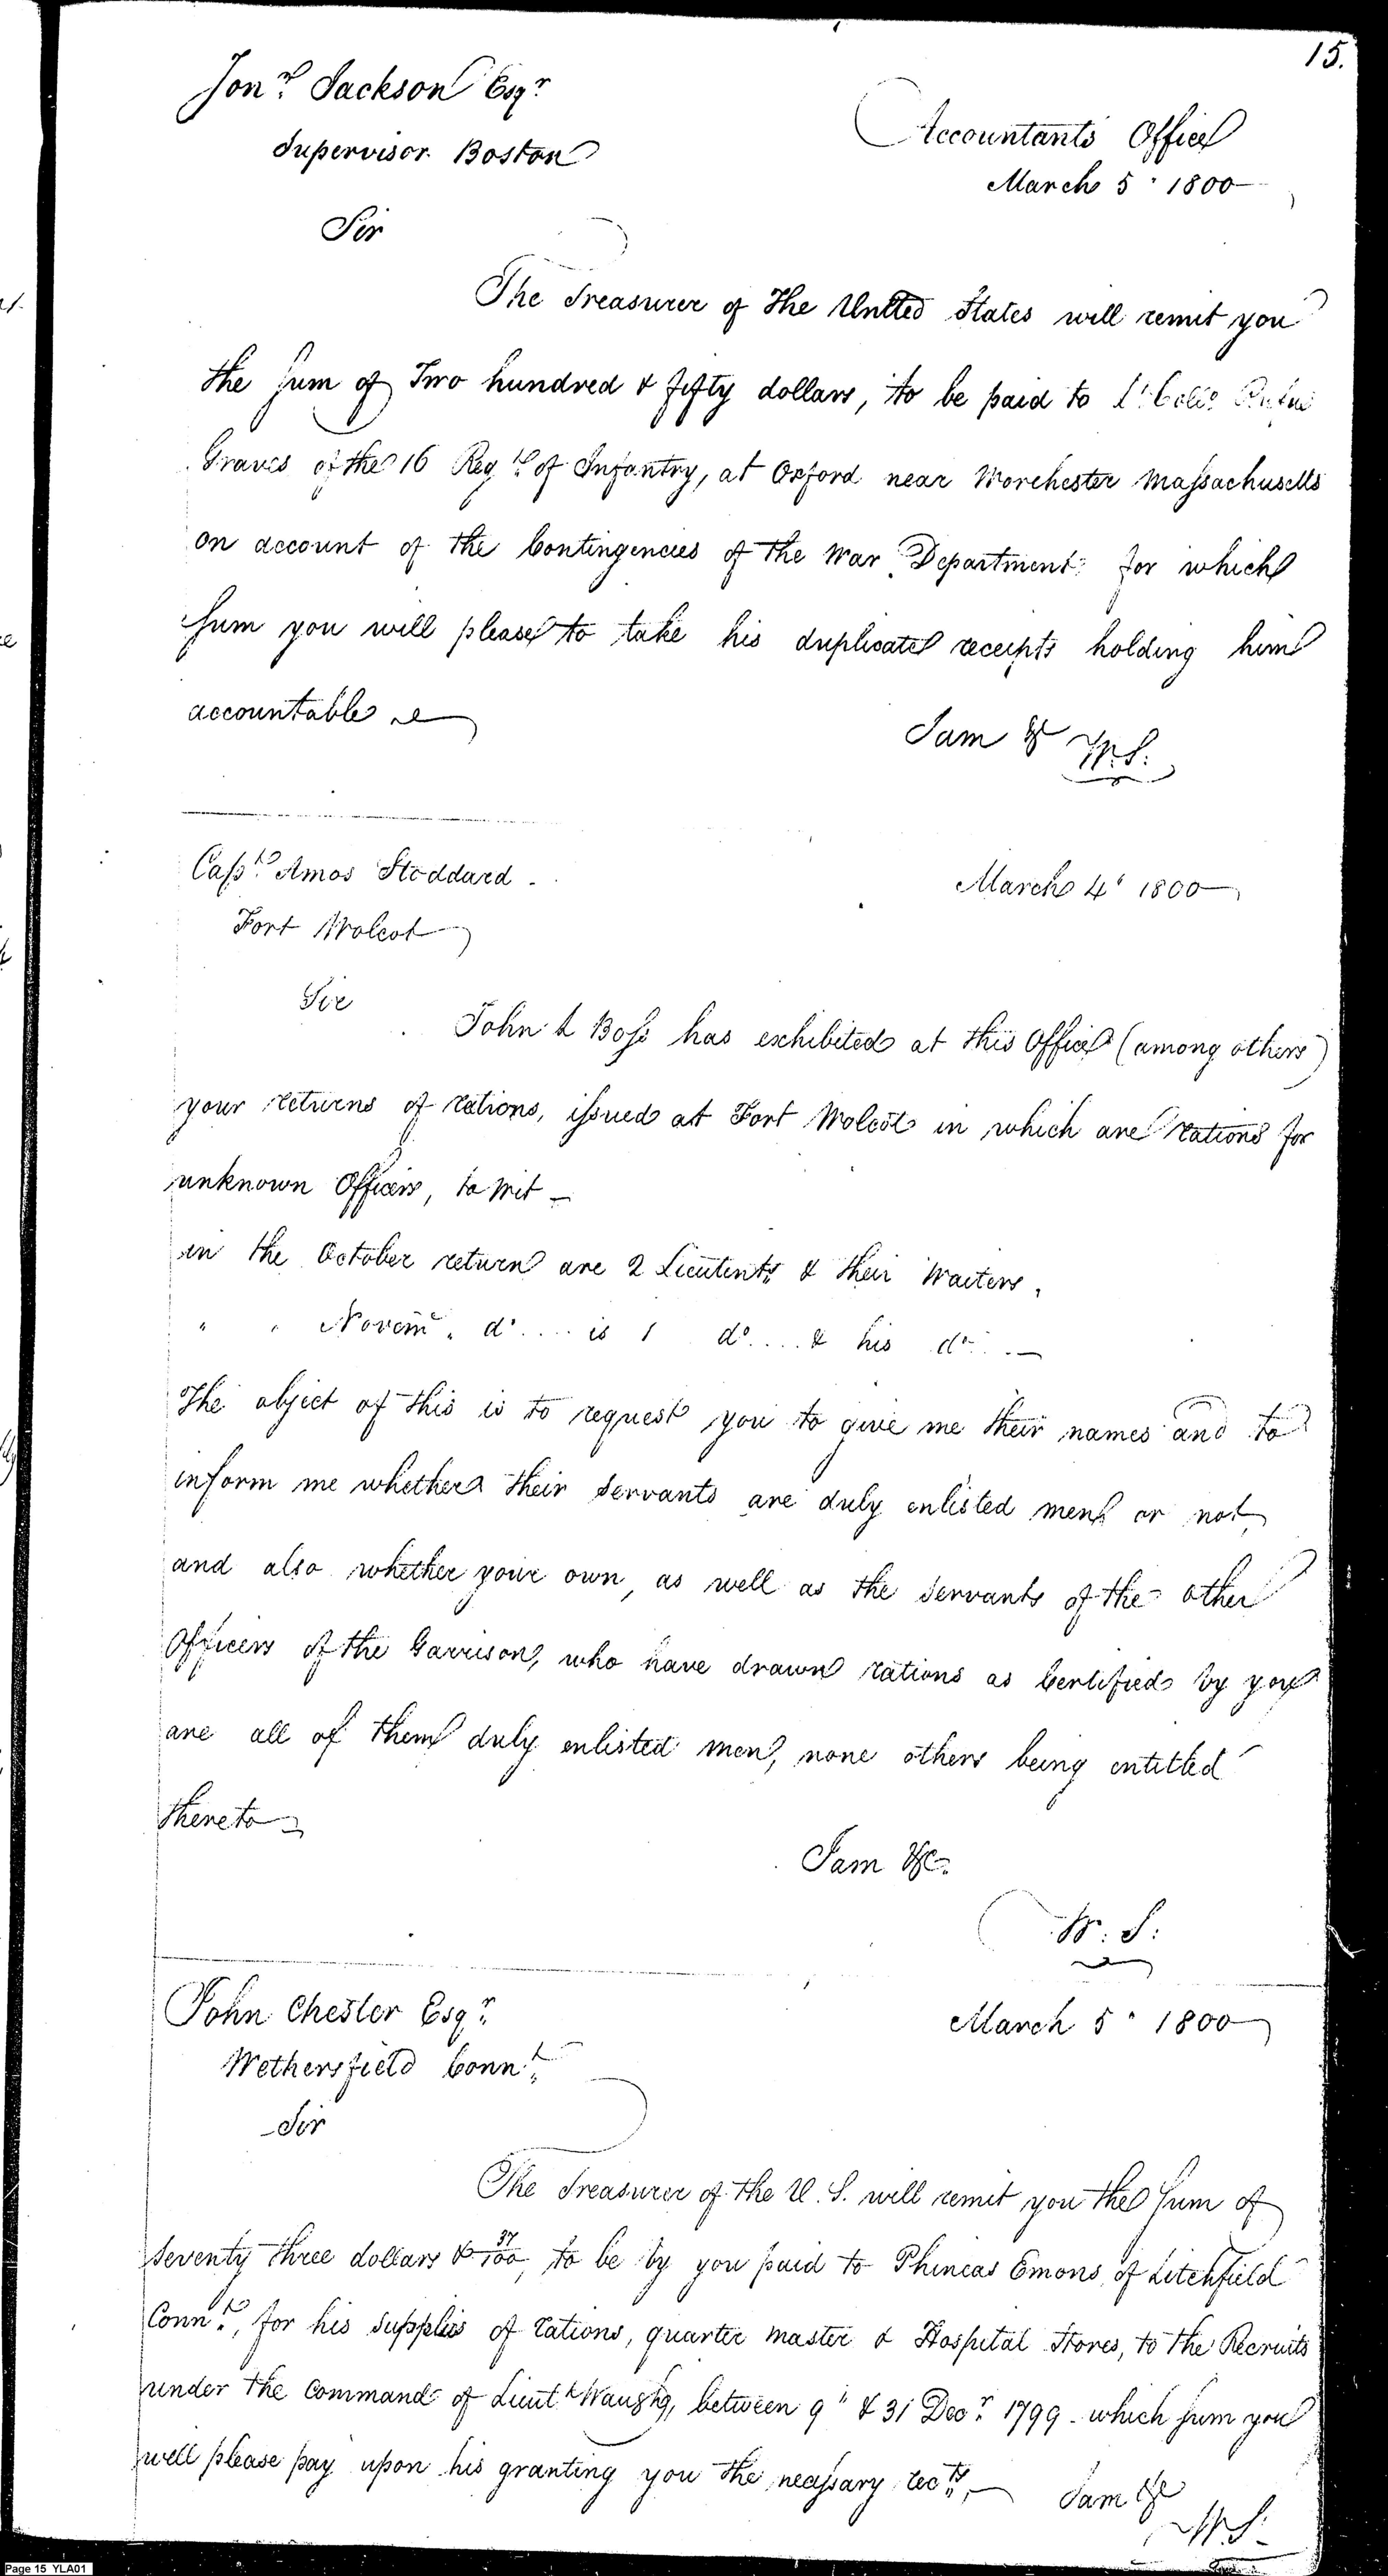 15.
Jon.ª Jackson Esq.r
Supervisor Boston
Accountants Office
March 5 . 1800
Sir
The Treasurer of the United States will remit you
the sum of Two hundred & fifty dollars, to be paid to Lt. Colo. Rufus
Graves of the 16 Reg.t of Infantry, at Oxford near Worchester Massachusetts
on account of the Contingencies of the War Department for which
sum you will please to take his duplicate receipts holding him
accountable
I am &
W. S:
Capt. Amos Stoddard.
Fort Wolcot
March 4. 1800
Sir
John L Boss has exhibited at this Office (among others)
your returns of rations, issued at Fort Wolcot in which are rations for
unknown Officers, to wit -
in the October return are 2 Lieutents & their Waiters,
" " Novemr. do .... is 1 do .... & his do ..
The object of this is to request you to give me their names and to
inform me whether their servants are duly enlisted men or not,
and also whether your own, as well as the servants of the other
Officers of the Garrison, who have drawn rations as Certified by you
are all of them duly enlisted men, none others being entitled
thereto
I am &c.
W: S:
John Chester Esq.r
Wethersfield Conn.t
March 5 . 1800
Sir
The Treasurer of the U. S. will remit you the sum of
seventy three dollars & 37/100, to be by you paid to Phineas Emons, of Litchfield
Conn.t, for his supplies of rations, quarter master & Hospital Stores, to the Recruits
under the command of Lieut.t Waugh, between 9" & 31 Decr. 1799 - which sum you
will please pay upon his granting you the necessary recTs, -
I am &c
W. S:
Page 15 YLA01